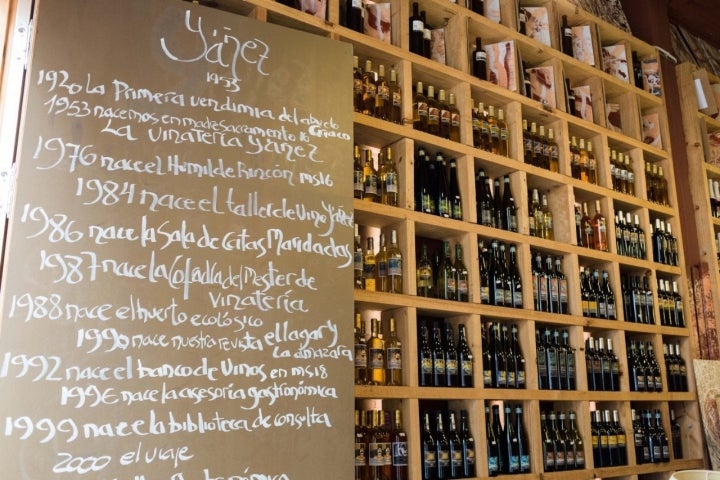 Yáñez
1953
1920 la Primera vendimia del abuelo
1953 nacemos en madre Sacramento 16
La vinatería Yáñez
1976 nace el Humilde Rincón ms16
1984 nace el taller de Vino Yáñez
1986 nace la Sala de Catas Maridadas
1987 nace la Cofradía del Master de
Vinatería
1988 nace el huerto ecológico
1990 nace nuestra revista el lagar y
La almazara
1992 nace el banco de Vinos en ms18
1996 nace la asesoría gastronómica
1999 nace la biblioteca de consulta
2000 el viaje